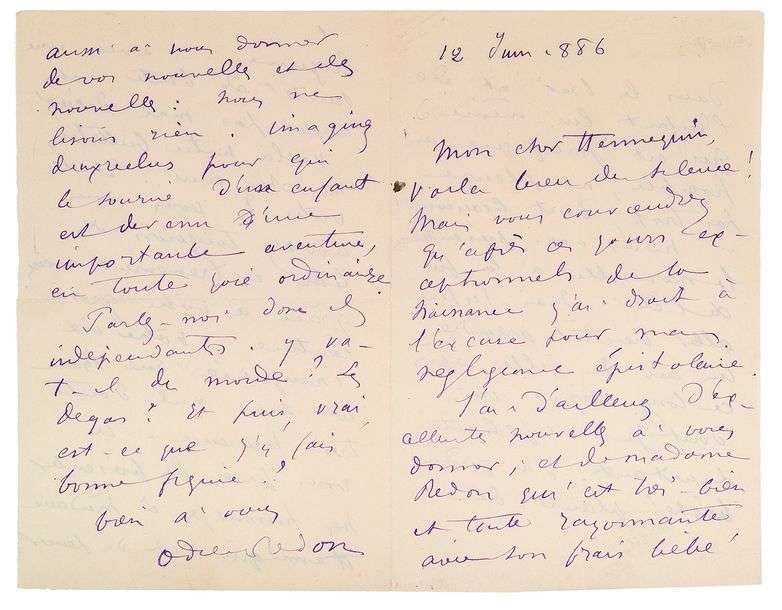 12 Juin 1886
Mon cher Hennequin,
Voilà bien du silence !
Mais vous conviendrez
qu'après ces jours ex-
ceptionnels de la
naissance j'ai droit à
l'excuse pour ma
négligence épistolaire.
J'ai d'ailleurs d'ex-
cellentes nouvelles à vous
donner, et de madame
Redon qui est très-bien
et toute rayonnante
avec son frais bébé !
aussi à nous donner
de vos nouvelles et des
nouvelles : nous ne
lisons rien. Imaginez
deux reclus pour qui
le sourire d'un enfant
est devenu d'une
importante aventure,
en toute joie ordinaire.
Parlez-moi donc des
indépendants. y va-
t-il du monde ? Les
degas ? Et puis, vrai,
est-ce que j'y fais
bonne figure ?
bien à vous
Odilon Redon